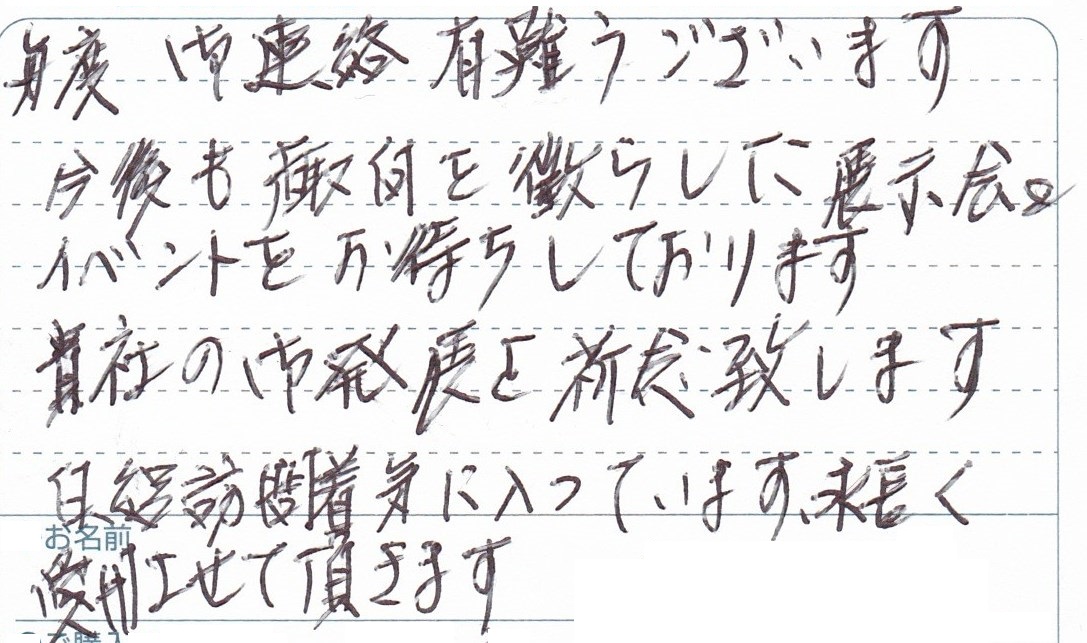 毎度 御連絡 有難うございます
今後も趣向を徴らしに展示会の
イベントをお待ちしております
貴社の御発展と祈念致します
訪問着 気に入っています、末長く
お名前
使用させて頂きます
ご購入